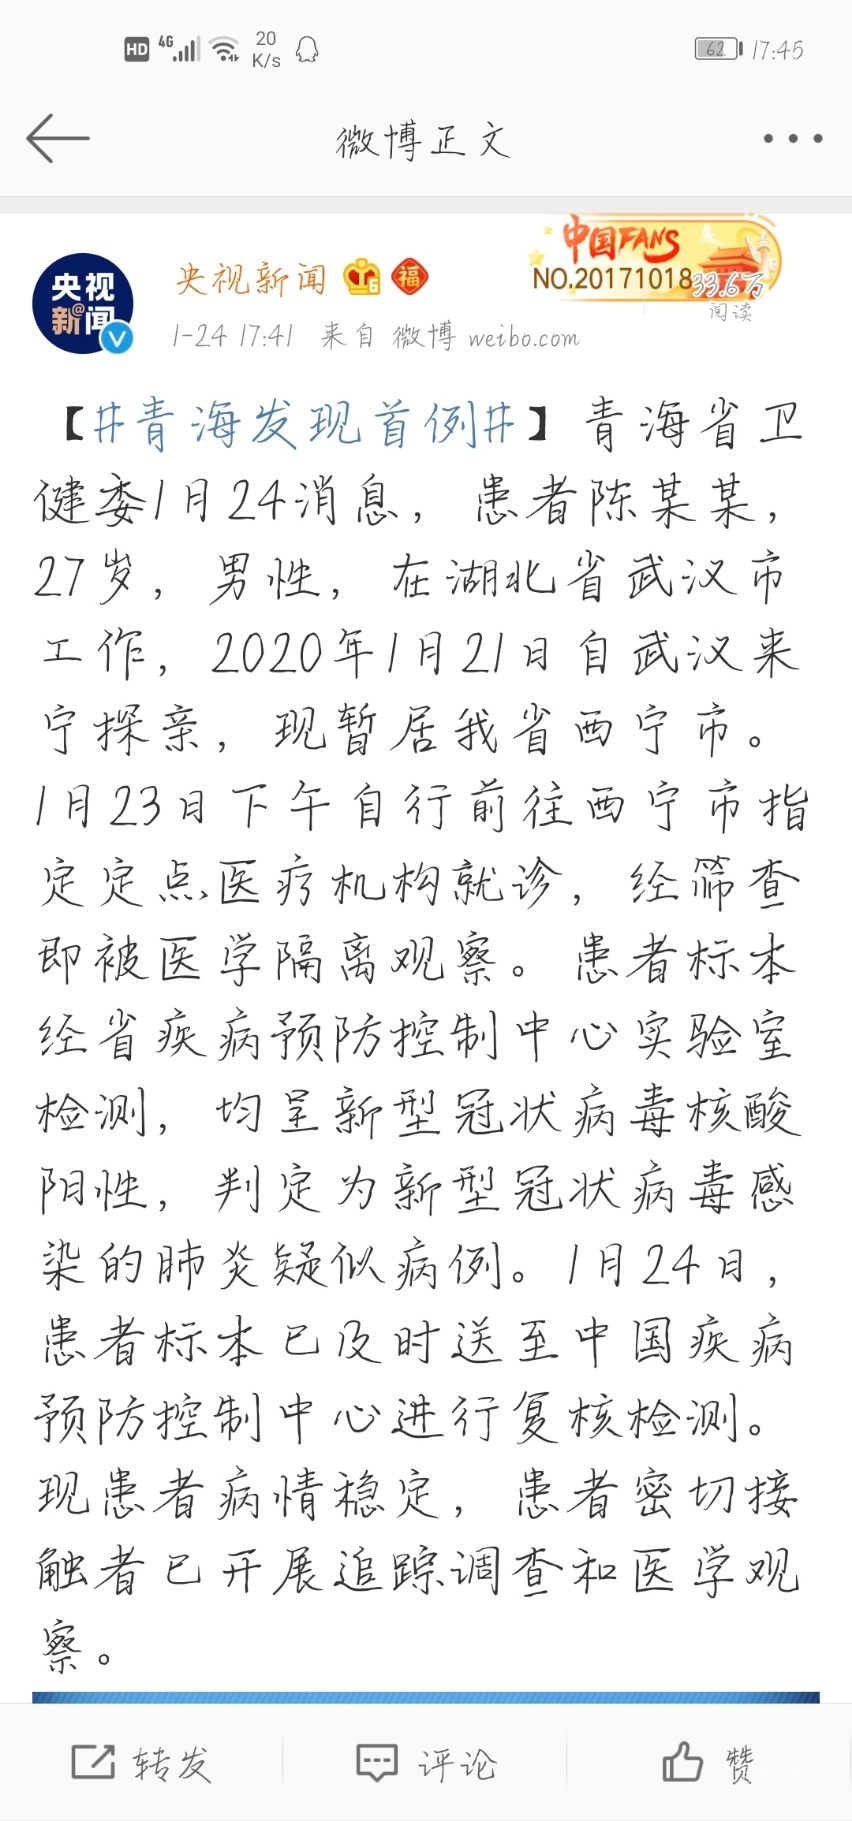 HD 4G 20 K/s 62 17:45
微博正文
中国FANS
央视新闻 NO.20171018 33.6万
央视新闻 阅读
1-24 17:41 来自 微博 weibo.com
【#青海发现首例#】青海省卫
健委1月24消息，患者陈某某，
27岁，男性，在湖北省武汉市
工作，2020年1月21日自武汉来
宁探亲，现暂居我省西宁市。
1月23日下午自行前往西宁市指
定定点医疗机构就诊，经筛查
即被医学隔离观察。患者标本
经省疾病预防控制中心实验室
检测，均呈新型冠状病毒核酸
阳性，判定为新型冠状病毒感
染的肺炎疑似病例。1月24日，
患者标本已及时送至中国疾病
预防控制中心进行复核检测。
现患者病情稳定，患者密切接
触者已开展追踪调查和医学观
察。
转发 评论 赞